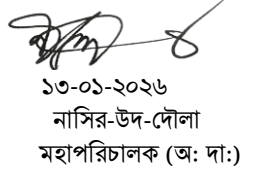 ১৩-০১-২০২৬
নাসির-উদ-দৌলা
মহাপরিচালক (অ: দা:)